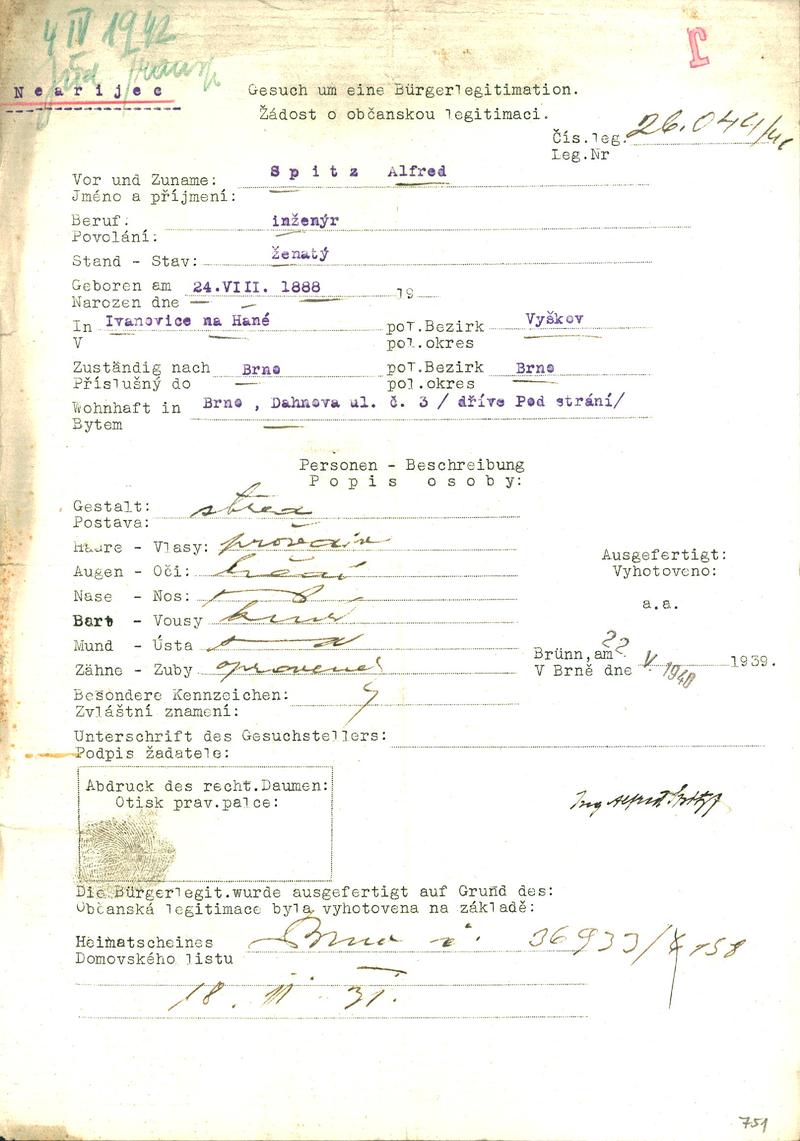 4 IV 1942
J
Nearijec
Gesuch um eine Bürgerlegitimation.
Žádost o občanskou legitimaci.
Čís.leg. 26.044/40
Leg.Nr
Vor und Zuname: Spitz Alfred
Jméno a příjmení:
Beruf: inženýr
Povolání:
Stand - Stav: ženatý
Geboren am 24.VIII. 1888 19
Narozen dne
In Ivanovice na Hané pol.Bezirk Vyškov
V pol.okres
Zuständig nach Brno pol.Bezirk Brno
Příslušný do pol.okres
Wohnhaft in Brno , Dahnova ul. č. 3 / dříve Pod strání/
Bytem
Personen - Beschreibung
Popis osoby:
Gestalt: střed
Postava:
Haare - Vlasy: prošediv
Augen - Oči:
Nase - Nos:
Bart - Vousy knír
Mund - Ústa
Zähne - Zuby opravené
Ausgefertigt:
Vyhotoveno:
a.a.
Brünn,am 22
V Brně dne V. 1940 1939.
Besondere Kennzeichen:
Zvláštní znamení:
Unterschrift des Gesuchstellers:
Podpis žadatele:
Abdruck des recht.Daumen:
Otisk prav.palce:
Ing Alfred Spitz
Die Bürgerlegit.wurde ausgefertigt auf Grund des:
Občanská legitimace byla vyhotovena na základě:
Heimatscheines Brno č. 36933/
Domovského listu
18. II. 31.
751